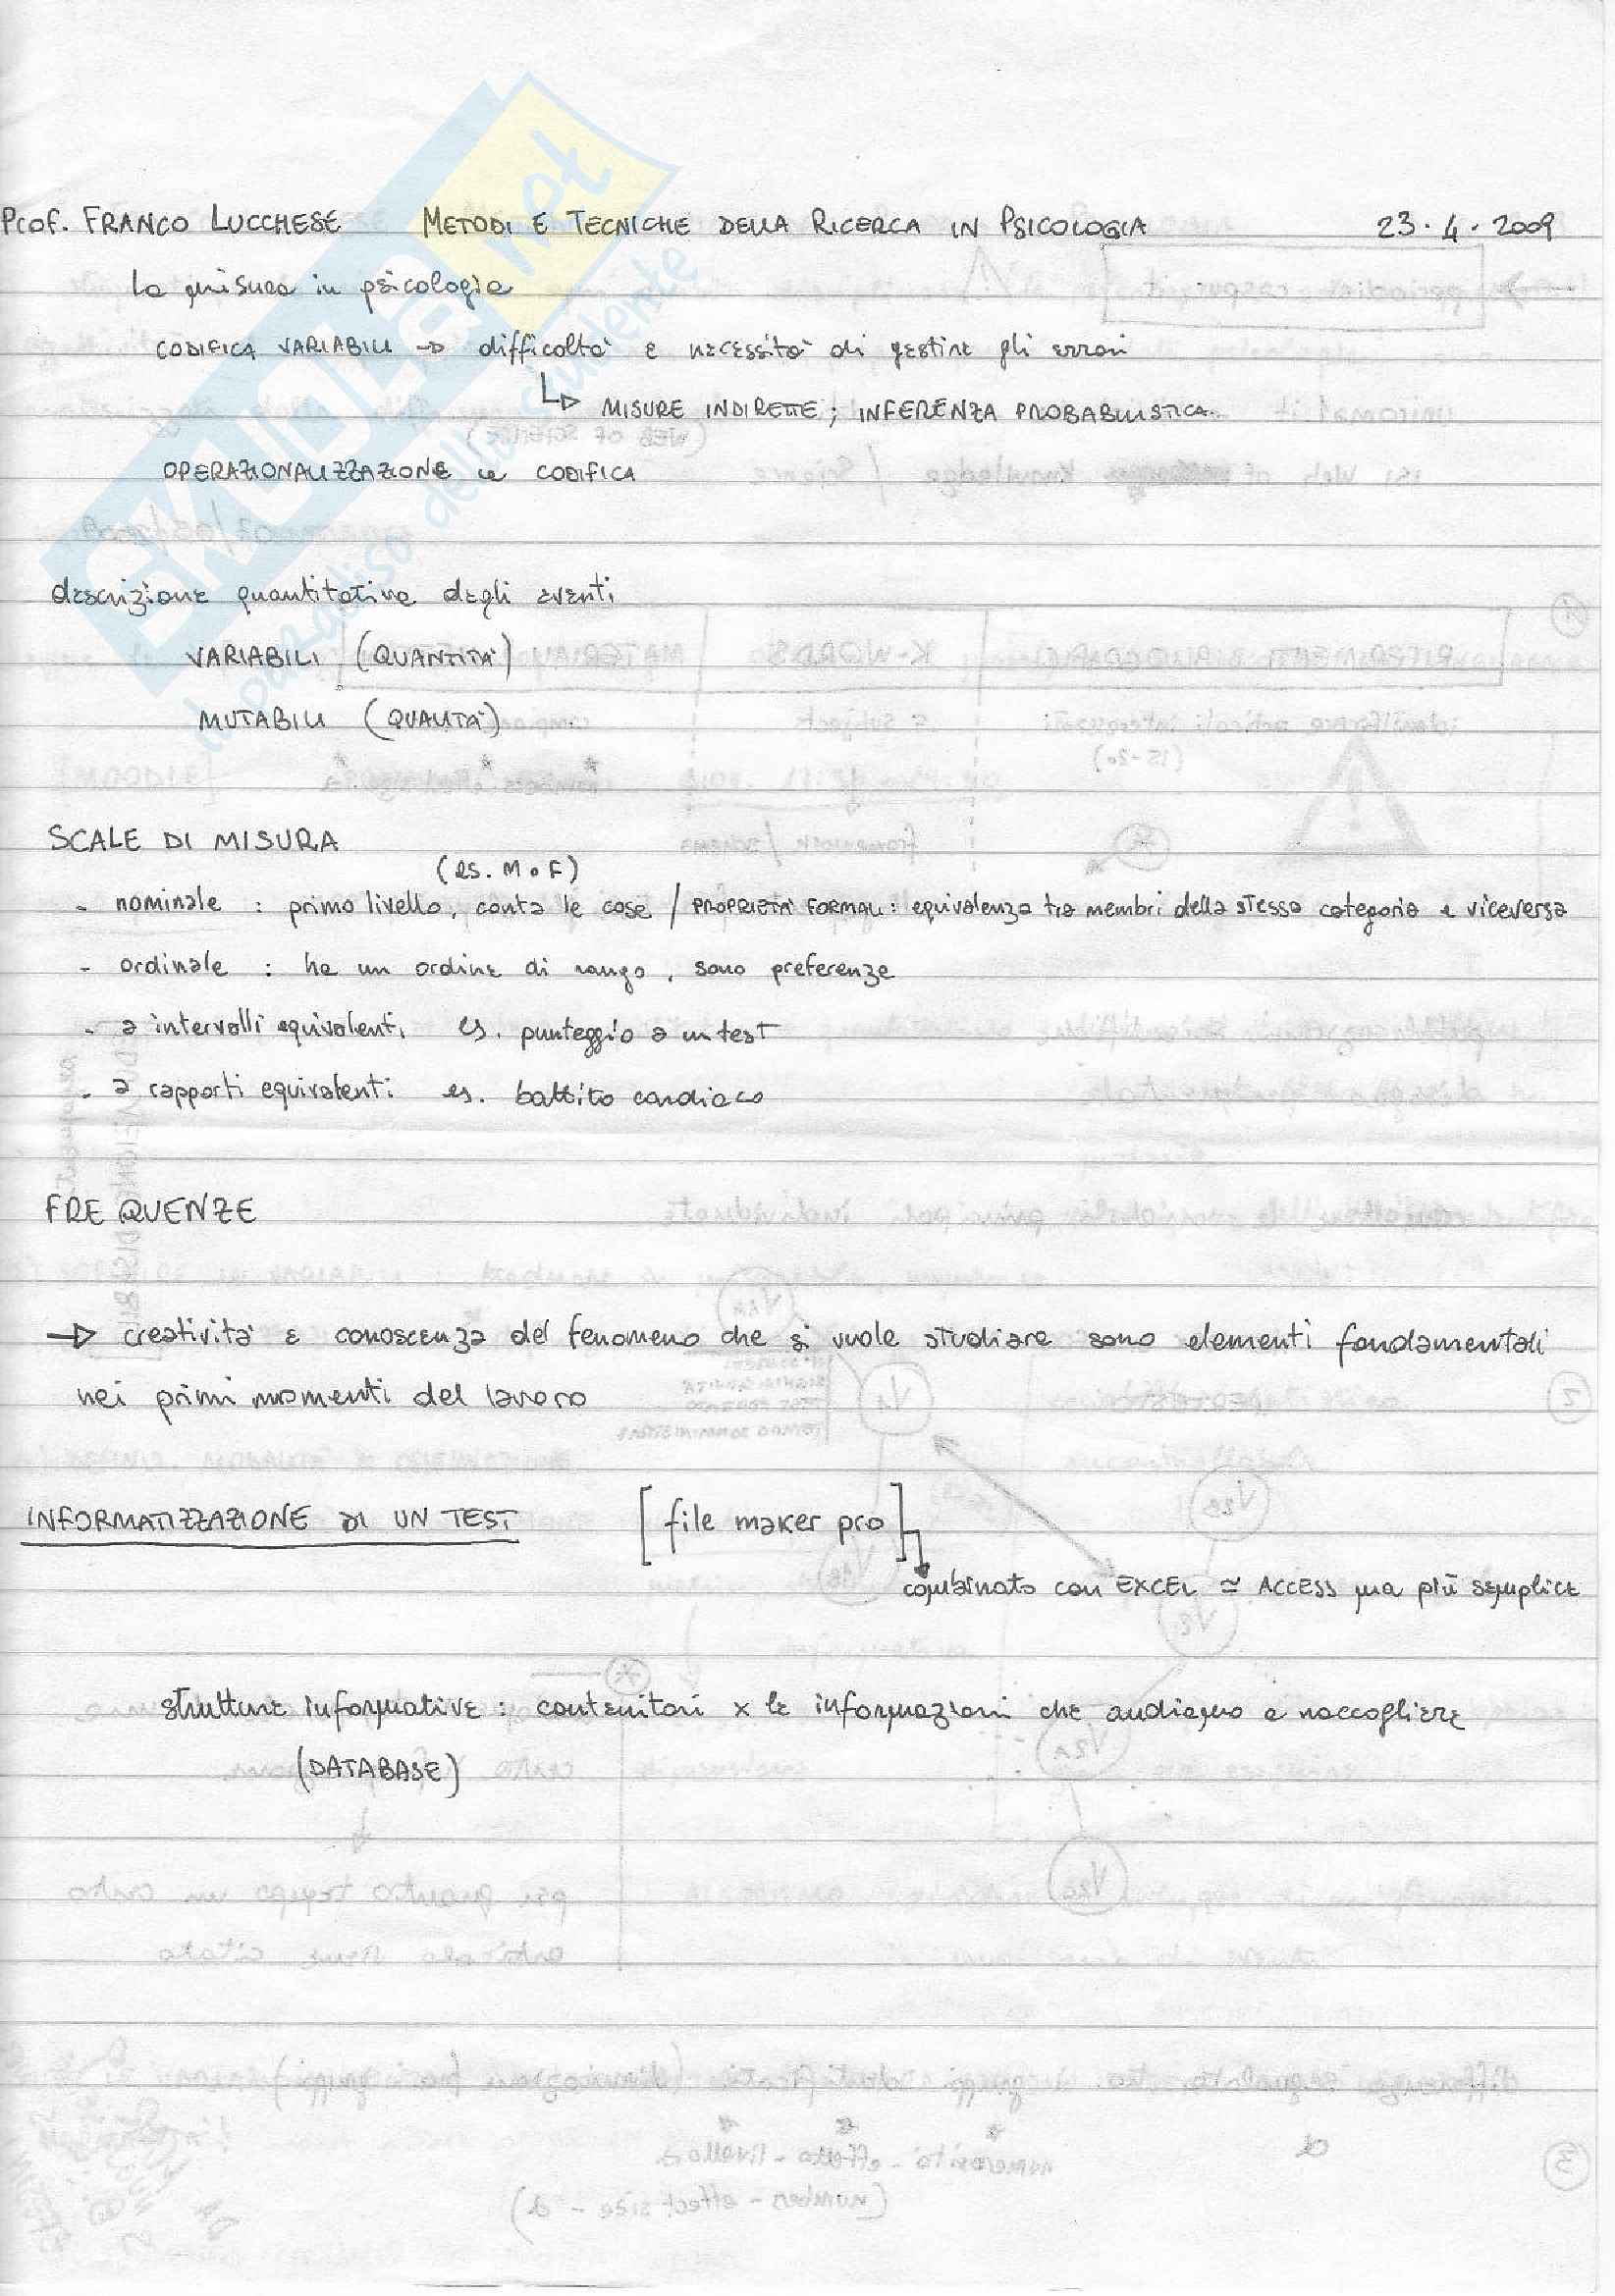 Prof. FRANCO LUCCHESE METODI E TECNICHE DELLA RICERCA IN PSICOLOGIA 23.4.2009
La misura in psicologia
CODIFICA VARIABILI → difficoltà e necessità di gestire gli errori
↳ MISURE INDIRETTE; INFERENZA PROBABILISTICA.
OPERAZIONALIZZAZIONE e CODIFICA
descrizione quantitativa degli eventi
VARIABILI (QUANTITA')
MUTABILI (QUALITA')
SCALE DI MISURA
(es. M o F)
- nominale : primo livello, conta le cose / PROPRIETA' FORMALI: equivalenza tra membri della stessa categoria e viceversa
- ordinale : ha un ordine di rango, sono preferenze
- a intervalli equivalenti, es. punteggio a un test
- a rapporti equivalenti es. battito cardiaco
FREQUENZE
→ creatività e conoscenza del fenomeno che si vuole studiare sono elementi fondamentali
nei primi momenti del lavoro
INFORMATIZZAZIONE DI UN TEST [file maker pro]
combinato con EXCEL ≃ ACCESS ma più semplice
strutture informative : contenitori x le informazioni che andiamo a raccogliere
(DATABASE)
SKUOLA.net
il paradiso dello studente